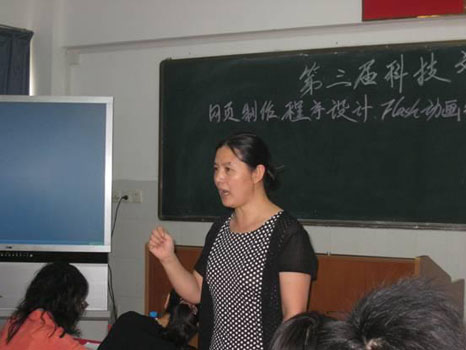 第三届科技
网页制作 程序设计 Flash动画